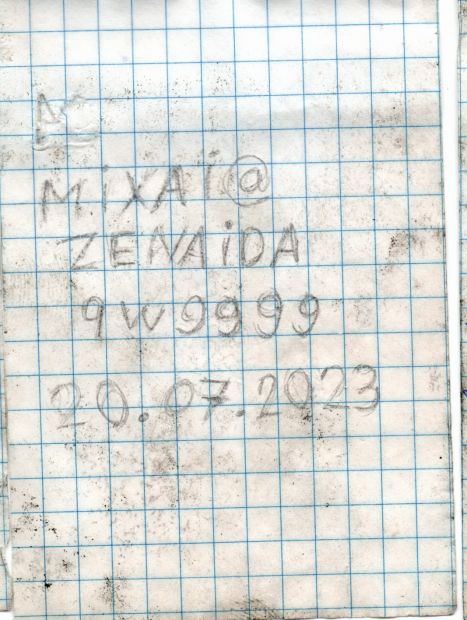 MiXAi@
ZENAiDA
qw9999
20.07.2023